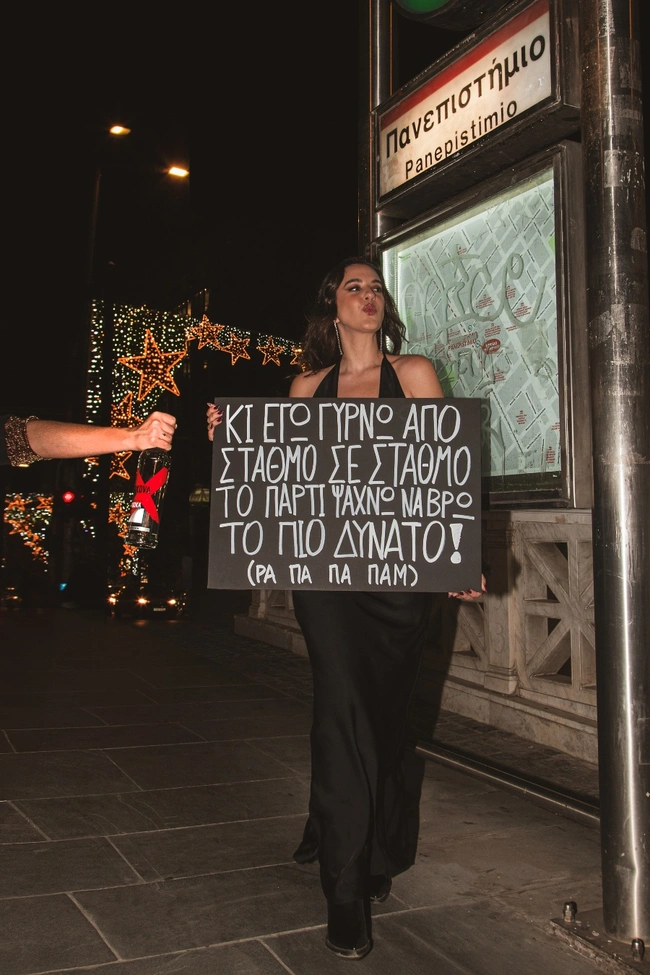 Πανεπιστήμιο
Panepistimio
ΚΙ ΕΓΩ ΓΥΡΝΩ ΑΠΟ
ΣΤΑΘΜΟ ΣΕ ΣΤΑΘΜΟ
ΤΟ ΠΑΡΤΙ ΨΑΧΝΩ ΝΑ ΒΡΩ
ΤΟ ΠΙΟ ΔΥΝΑΤΟ!
(ΡΑ ΠΑ ΠΑ ΠΑΜ)